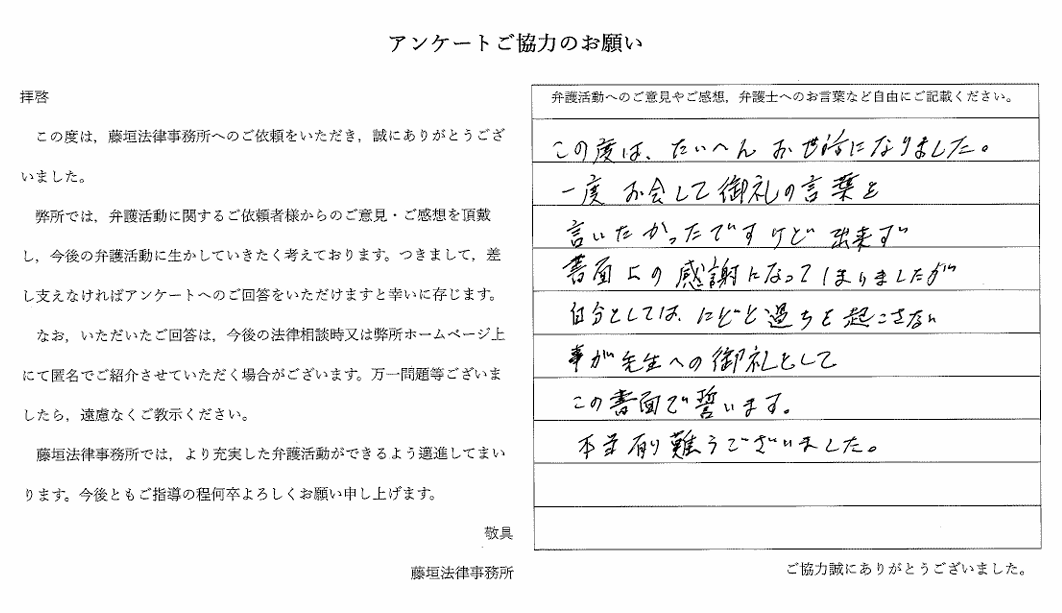 アンケートご協力のお願い
拝啓
この度は，藤垣法律事務所へのご依頼をいただき，誠にありがとうござ
いました。
弊所では，弁護活動に関するご依頼者様からのご意見・ご感想を頂戴
し，今後の弁護活動に生かしていきたく考えております。つきまして，差
し支えなければアンケートへのご回答をいただけますと幸いに存じます。
なお，いただいたご回答は，今後の法律相談時又は弊所ホームページ上
にて匿名でご紹介させていただく場合がございます。万一問題等ございま
したら，遠慮なくご教示ください。
藤垣法律事務所では，より充実した弁護活動ができるよう邁進してまい
ります。今後ともご指導の程何卒よろしくお願い申し上げます。
敬具
藤垣法律事務所
弁護活動へのご意見やご感想，弁護士へのお言葉など自由にご記載ください。
この度は、たいへん お世話になりました。
一度 お会して御礼の言葉を
言いたかったですけど 出来ず
書面上の感謝になってしまりましたが
自分としては、にどと過ちを起こさない
事が先生への御礼として
この書面で誓います。
本当有り難うございました。
ご協力誠にありがとうございました。